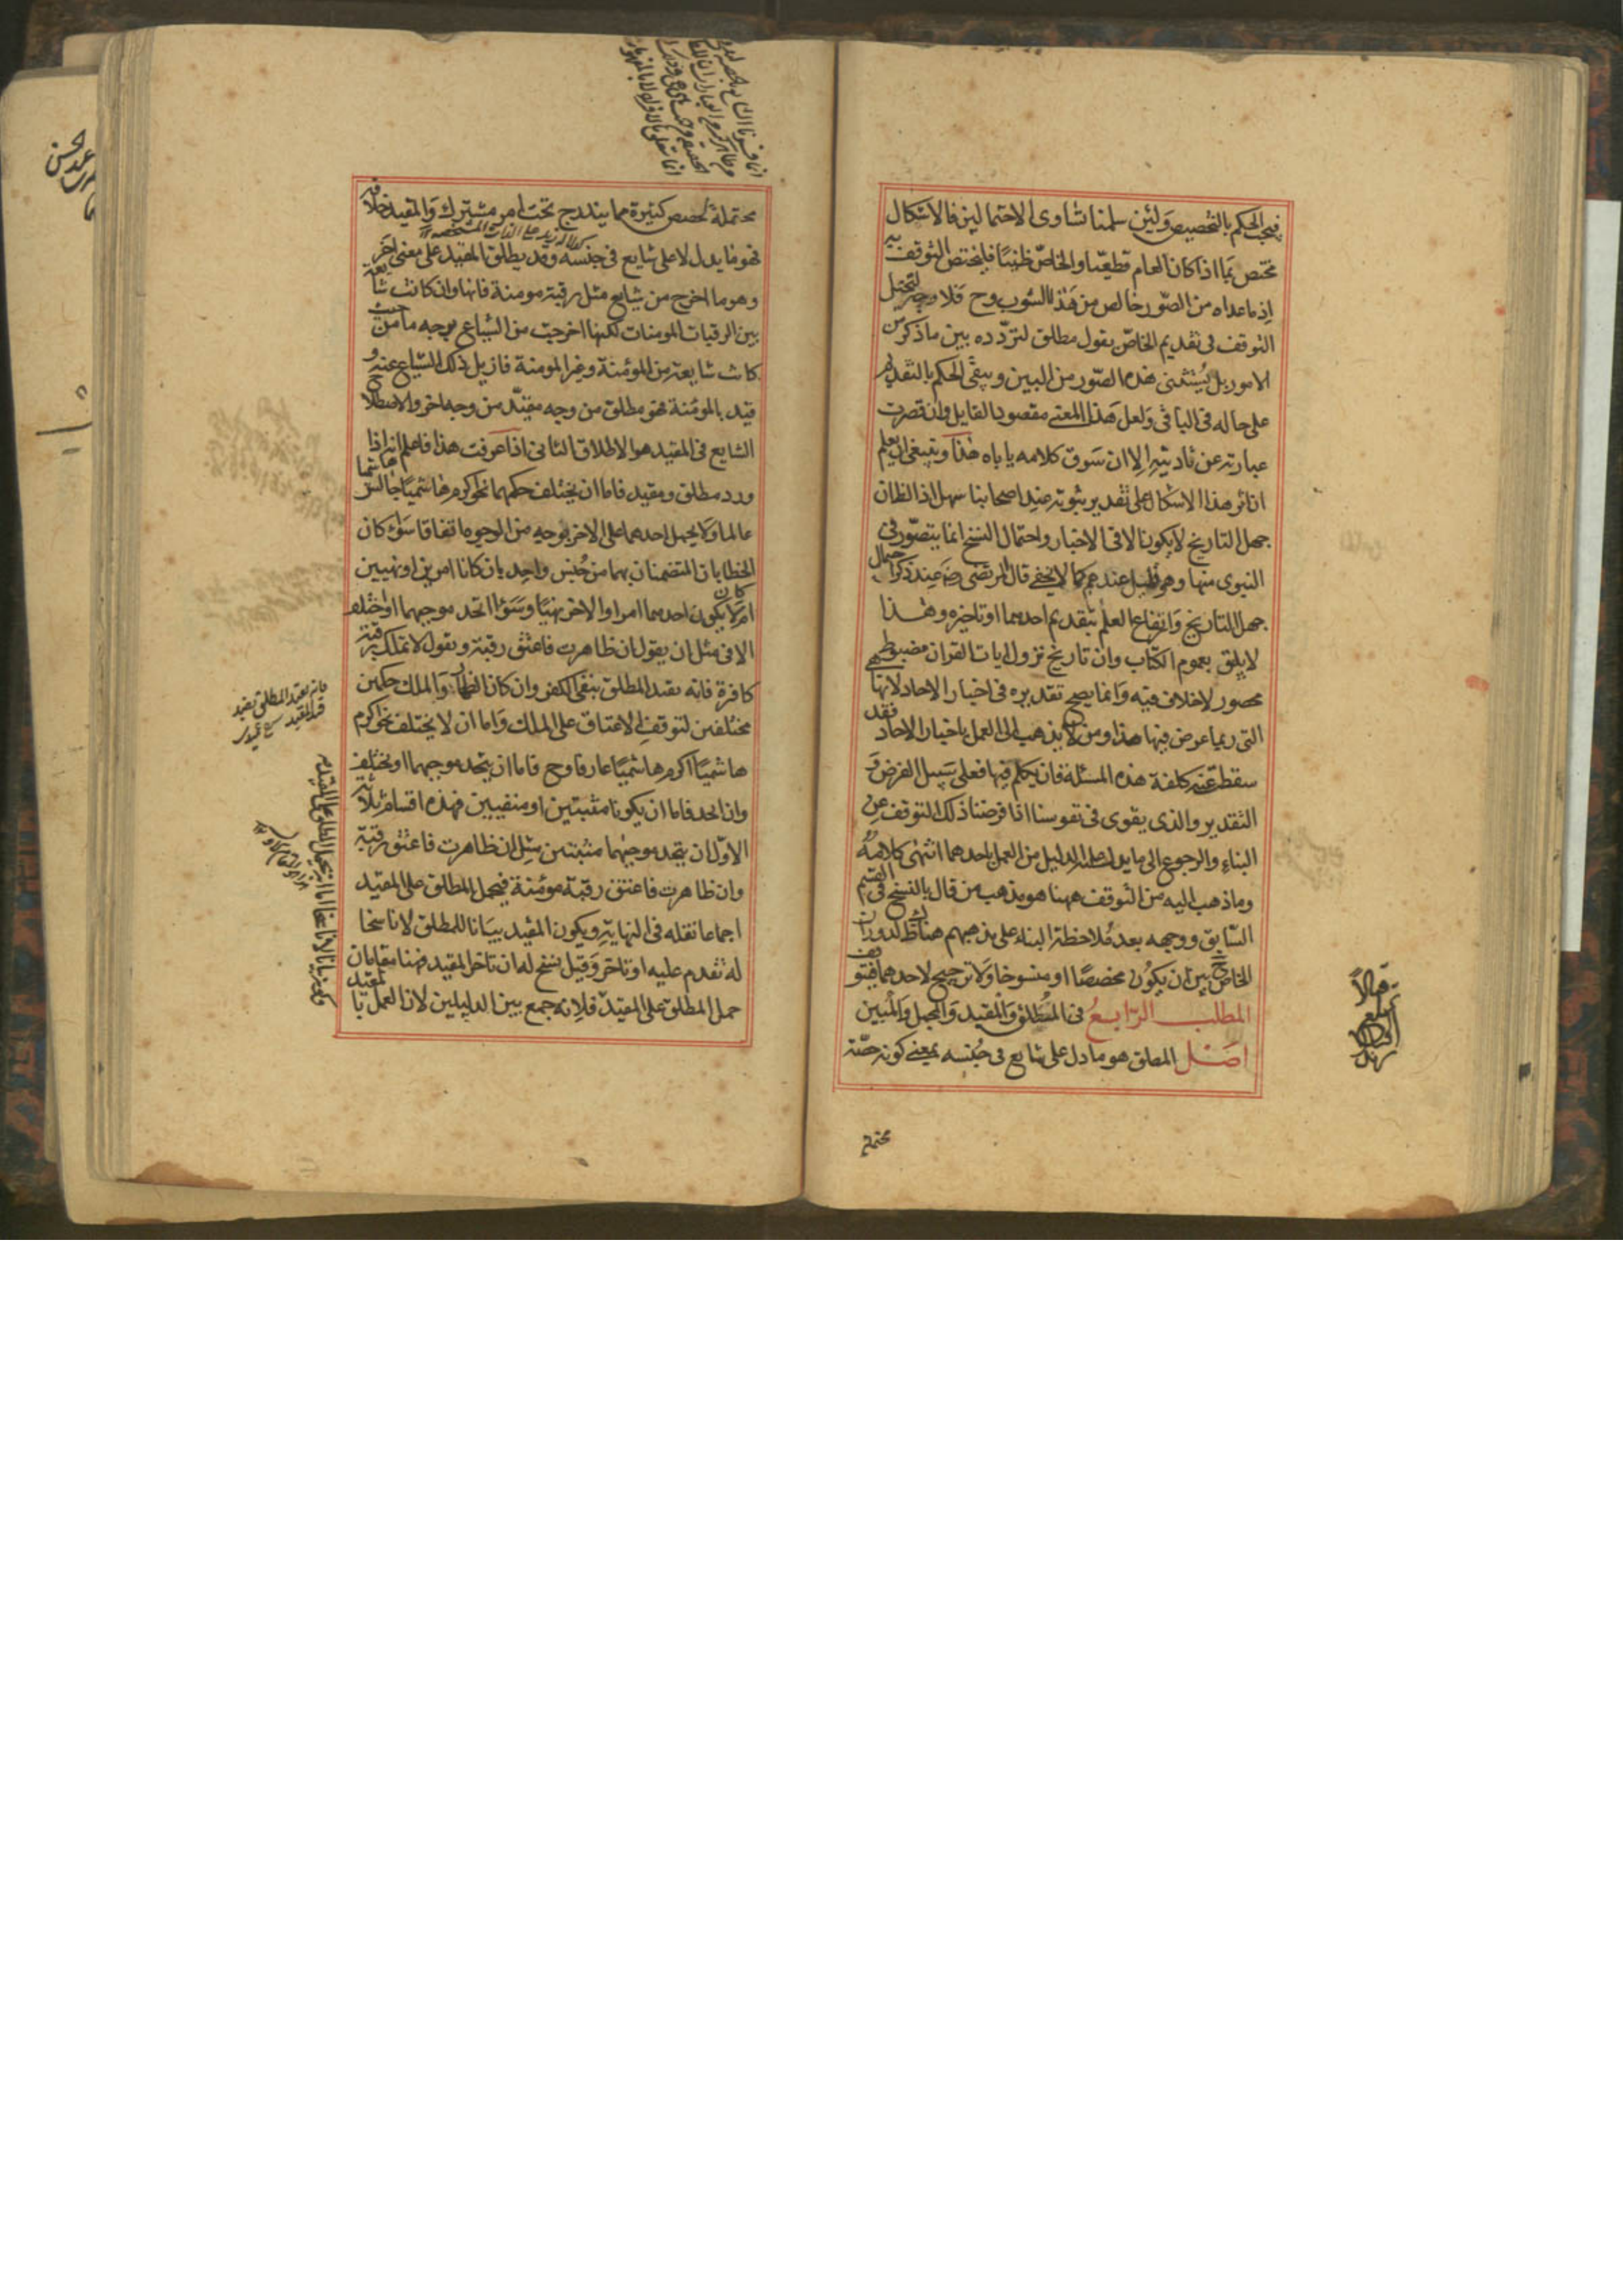 فيجب الحكم بالتخصيص ولئن سلمنا تساوى الاحتمالين فالاشكال
مختص بما اذا كان العام قطعيا والخاص ظنيا فليختص التوقف به
اذ ماعداه من الصور خالص من هذا الشوب وح فلا وجه لتخيل
التوقف فى تقديم الخاص بقول مطلق لتردده بين ما ذكر من
الامور بل يستثنى هذه الصور من البين ويبقى الحكم بالتقديم
على حاله فى الباقى ولعل هذا المعنى مقصود القايل وان قصرت
عبارته عن تاديته الا ان سوق كلامه ياباه هذا وينبغى ان يعلم
ان اثر هذا الاشكال على تقدير ثبوته عند اصحابنا سهل اذ الظاهر ان
جهل التاريخ لا يكون الا فى الاخبار واحتمال النسخ انما يتصور فى
النبوى منها وهو قليل عندهم كما لا يخفى قال المرتضى رضه عند ذكر احتمال
جهل التاريخ وارتفاع العلم بتقديم احدهما او تاخيره وهذا
لا يليق بعموم الكتاب وان تاريخ نزول ايات القران مضبوط
محصور لا خلاف فيه وانما يصح تقديره فى اخبار الاحاد لانها هى
التى ربما عرض فيها هذا ومن لا يذهب الى العمل باخبار الاحاد فقد
سقطت عنه كلفة هذه المسئلة فان تكلم فيها فعلى سبيل الفرض و
التقدير والذى يقوى فى نفوسنا اذا فرضنا ذلك التوقف عن
البناء والرجوع الى ما يدل عليه الدليل من العمل باحدهما انتهى كلامه
وما ذهب اليه من التوقف ههنا هو مذهب من قال بالنسخ فى القسم
السابق ووجهه بعد ملاحظة البناء على مذهبهم هناك ظ لدوران
الخاص ح بين ان يكون مخصصا او منسوخا ولا ترجيح لاحدهما فيتوقف
المطلب الرابع فى المطلق والمقيد والمجمل والمبين
اصل المطلق هو ما دل على شايع فى جنسه بمعنى كونه حصة
محتملة
محتملة لحصص كثيرة مما يندرج تحت امر مشترك والمقيد خلافه
فهو ما يدل لا على شايع فى جنسه وقد يطلق المقيد على معنى اخر
وهو ما اخرج من شايع مثل رقبة مومنة فانها وان كانت شايعة
بين الرقبات المومنات لكنها اخرجت من الشياع بوجه ما من حيث
كانت شايعة من المؤمنة وغير المومنة فازيل ذلك الشياع عنه و
قيد بالمؤمنة فهو مطلق من وجه مقيد من وجه اخر والاصطلاح
الشايع فى المقيد هو الاطلاق الثانى اذا عرفت هذا فاعلم انه اذا
ورد مطلق ومقيد فاما ان يختلف حكمهما نحو اكرم هاشميا جالس هاشميا
عالما ولا يحمل احدهما على الاخر بوجه من الوجوه اتفاقا سواء كان
الخطابان المتضمنان بهما من جنس واحد بان كانا امرين او نهيين
ام لا كان يكون احدهما امرا والاخر نهيا وسواء اتحد موجبهما او اختلف
الا فى مثل ان يقول ان ظاهرت فاعتق رقبة ويقول لا تملك رقبة
كافرة فانه يقيد المطلق بنفى الكفر وان كان الظهار والملك حكمين
مختلفين لتوقف الاعتاق على الملك واما ان لا يختلف نحو اكرم
هاشميا اكرم هاشميا عارفا وح فاما ان يتحد موجبهما او يختلف
وان اتحد فاما ان يكونا مثبتين او منفيين فهذه اقسام ثلاثة
الاول ان يتحد موجبهما مثبتين مثل ان ظاهرت فاعتق رقبة
وان ظاهرت فاعتق رقبة مومنة فيحمل المطلق على المقيد
اجماعا نقله فى النهاية ويكون المقيد بيانا للمطلق لا ناسخا
له تقدم عليه او تاخر وقيل نسخ له ان تاخر المقيد فهنا مقامان
حمل المطلق على المقيد فلانه جمع بين الدليلين لان العمل بالمقيد